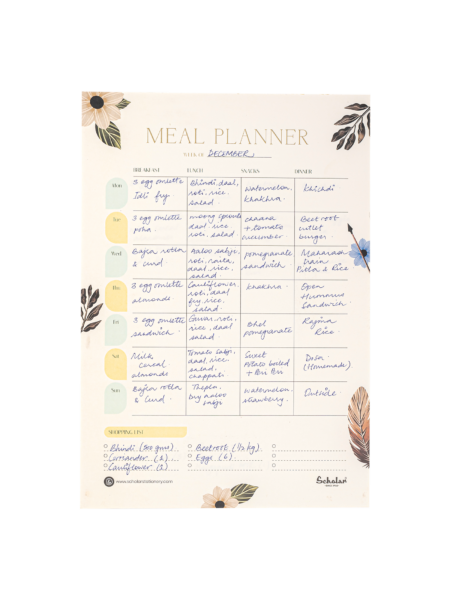 MEAL PLANNER
WEEK OF DECEMBER
BREAKFAST LUNCH SNACKS DINNER
Mon
3 egg omlette
Idli fry
Bhindi, daal,
roti, rice,
salad
watermelon,
khakhra.
Khichdi
Tue
3 egg omlette
poha
moong sprouts
daal, rice,
salad
chaana
+ tomato
cucumber
Beetroot
cutlet
burger.
Wed
Bajra rotla
& curd.
Aaloo sabji,
roti, raita,
daal, rice,
salad.
pomegranate
sandwich.
Maharaja
Dain
Pitla & Rice
Thu
3 egg omlette
almonds
Cauliflower,
roti, daal
fry, rice,
salad
khakhra.
Open
Hummus
Sandwich
Fri
3 egg omlette
sandwich.
roti,
rice, daal
salad.
Bhel
pomegranate
Rajma
Rice.
Sat
Milk
cereal
almonds
Tomato sabji,
daal, rice
salad,
chappati
Sweet
Potato boiled
Dosa
(Homemade)
Sun
Bajra rotla
& curd.
Thepla,
dry aaloo
sabji
watermelon,
strawberry.
Outside
SHOPPING LIST
Bhindi (500 gms)
Coriander (2)
Cauliflower (2)
Beetroot (1/2 kg)
Eggs (6)
www.scholarstationery.com
Scholar